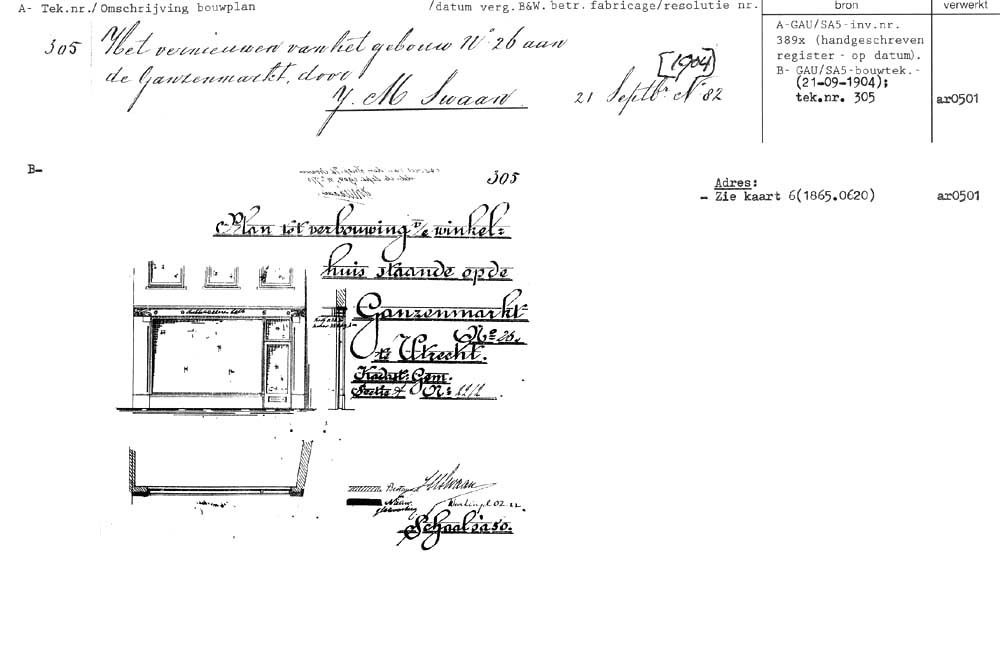 A- Tek.nr./Omschrijving bouwplan /datum verg.B&W. betr. fabricage/resolutie nr. bron verwerkt
305 Het vernieuwen van het gebouw No 26 aan
de Ganzenmarkt, door
J. M. Swaan.
[1904]
21 Septbr. No 82
A-GAU/SA5-inv.nr.
389x (handgeschreven
register - op datum).
B- GAU/SA5-bouwtek.-
(21-09-1904);
tek.nr. 305
ar0501
B-
305
Adres:
- Zie kaart 6(1865.0620)
ar0501
Plan tot verbouwing v/e winkel=
huis staande op de
Ganzenmarkt
No 26.
te Utrecht.
Kadast: Gem.
Sectie A No:
Nieuw
Schaal 1 à 50.